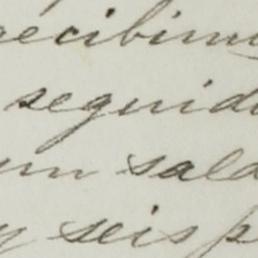 recibim
seguid
un sald
y seis p